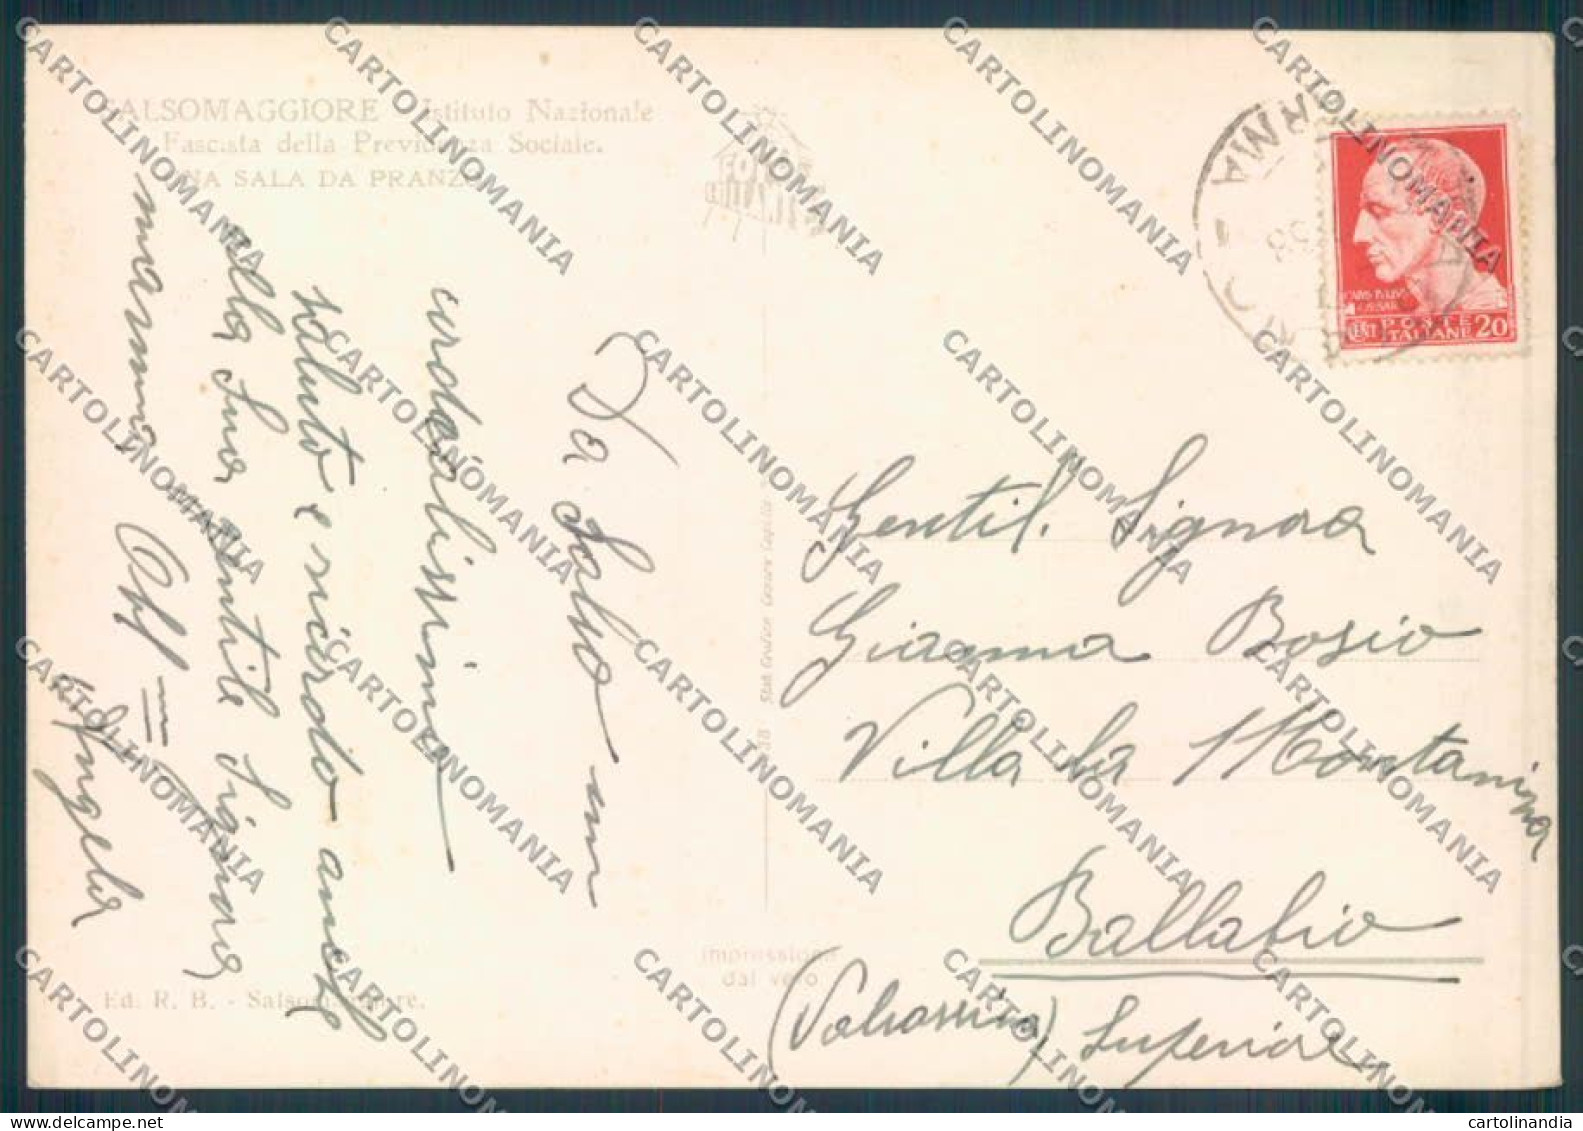 SALSOMAGGIORE - Istituto Nazionale
Fascista della Previdenza Sociale.
UNA SALA DA PRANZO
Da Salso un
cordialissimo
saluto e ricordo anche
alla Sua gentile Signora
mamma Aff
Angelia
Ed. R. B. - Salsomaggiore.
impressione
dal vero
Stab. Grafico Cesare Capello
PARMA
38
POSTE
ITALIANE
CENT 20
Gentil. Signora
Gianna Bosio
Villa La Montanina
Ballabio
(Valsassina) Superiore
CARTOLINOMANIA
cartolinandia